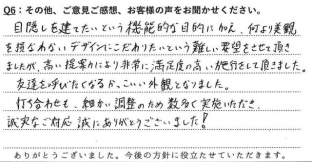 Q6：その他、ご意見ご感想、お客様の声をお聞かせください。
目隠しを建てたいという機能的な目的に加え、何より美観を
損なわないデザインにこだわりたいという難しい要望をさせて頂き
ましたが、高い提案力により非常に満足度の高い施行をして頂きました。
友達を呼びたくなるかっこいい外観となりました。
打ち合わせも、細かい調整のため数多く実施いただき、
誠実なご対応誠にありがとうございました！
ありがとうございました。今後の方針に役立たせていただきます。